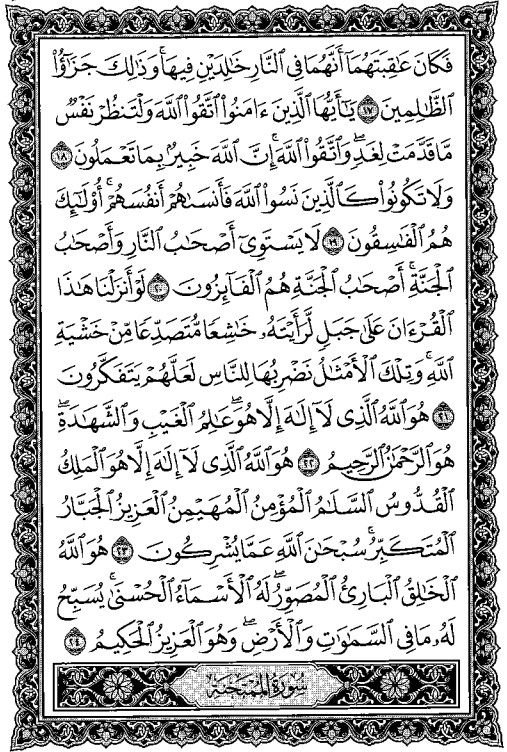 فَكَانَ عَٰقِبَتَهُمَآ أَنَّهُمَا فِي ٱلنَّارِ خَٰلِدَيْنِ فِيهَاۚ وَذَٰلِكَ جَزَٰٓؤُاْ
ٱلظَّٰلِمِينَ ١٧ يَٰٓأَيُّهَا ٱلَّذِينَ ءَامَنُواْ ٱتَّقُواْ ٱللَّهَ وَلْتَنظُرْ نَفْسٞ
مَّا قَدَّمَتْ لِغَدٖۖ وَٱتَّقُواْ ٱللَّهَۚ إِنَّ ٱللَّهَ خَبِيرُۢ بِمَا تَعْمَلُونَ ١٨
وَلَا تَكُونُواْ كَٱلَّذِينَ نَسُواْ ٱللَّهَ فَأَنسَىٰهُمْ أَنفُسَهُمْۚ أُوْلَٰٓئِكَ
هُمُ ٱلْفَٰسِقُونَ ١٩ لَا يَسْتَوِيٓ أَصْحَٰبُ ٱلنَّارِ وَأَصْحَٰبُ
ٱلْجَنَّةِۚ أَصْحَٰبُ ٱلْجَنَّةِ هُمُ ٱلْفَآئِزُونَ ٢٠ لَوْ أَنزَلْنَا هَٰذَا
ٱلْقُرْءَانَ عَلَىٰ جَبَلٖ لَّرَأَيْتَهُۥ خَٰشِعٗا مُّتَصَدِّعٗا مِّنْ خَشْيَةِ
ٱللَّهِۚ وَتِلْكَ ٱلْأَمْثَٰلُ نَضْرِبُهَا لِلنَّاسِ لَعَلَّهُمْ يَتَفَكَّرُونَ
٢١ هُوَ ٱللَّهُ ٱلَّذِي لَآ إِلَٰهَ إِلَّا هُوَۖ عَٰلِمُ ٱلْغَيْبِ وَٱلشَّهَٰدَةِۖ
هُوَ ٱلرَّحْمَٰنُ ٱلرَّحِيمُ ٢٢ هُوَ ٱللَّهُ ٱلَّذِي لَآ إِلَٰهَ إِلَّا هُوَ ٱلْمَلِكُ
ٱلْقُدُّوسُ ٱلسَّلَٰمُ ٱلْمُؤْمِنُ ٱلْمُهَيْمِنُ ٱلْعَزِيزُ ٱلْجَبَّارُ
ٱلْمُتَكَبِّرُۚ سُبْحَٰنَ ٱللَّهِ عَمَّا يُشْرِكُونَ ٢٣ هُوَ ٱللَّهُ
ٱلْخَٰلِقُ ٱلْبَارِئُ ٱلْمُصَوِّرُۖ لَهُ ٱلْأَسْمَآءُ ٱلْحُسْنَىٰۚ يُسَبِّحُ
لَهُۥ مَا فِي ٱلسَّمَٰوَٰتِ وَٱلْأَرْضِۖ وَهُوَ ٱلْعَزِيزُ ٱلْحَكِيمُ ٢٤
سُورَةُ الْمُمْتَحَنَةِ